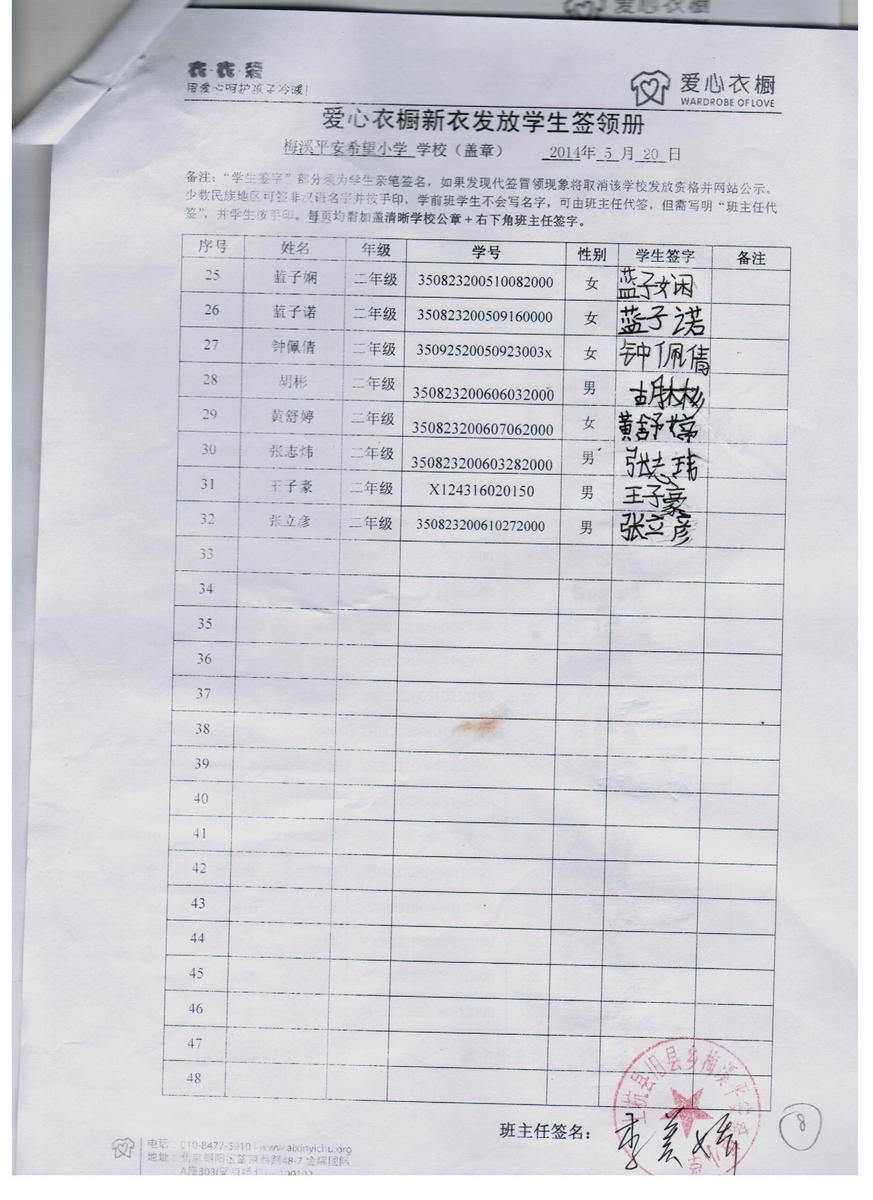 爱心衣橱
衣·衣·爱
用爱心呵护孩子冷暖!
爱心衣橱
WARDROBE OF LOVE
爱心衣橱新衣发放学生签领册
梅溪平安希望小学 学校（盖章） 2014年 5 月 20 日
备注：“学生签字”部分须为学生亲笔签名，如果发现代签冒领现象将取消该学校发放资格并网站公示。
少数民族地区可签非汉语名字并按手印，学前班学生不会写名字，可由班主任代签，但需写明“班主任代
签”，并学生按手印。每页均需加盖清晰学校公章+右下角班主任签字。
序号 姓名 年级 学号 性别 学生签字 备注
25 蓝子娴 二年级 350823200510082000 女 蓝子娴
26 蓝子诺 二年级 350823200509160000 女 蓝子诺
27 钟佩倩 二年级 35092520050923003x 女 钟佩倩
28 胡彬 二年级 350823200606032000 男 胡彬
29 黄舒婷 二年级 350823200607062000 女 黄舒婷
30 张志炜 二年级 350823200603282000 男 张志玮
31 王子豪 二年级 X124316020150 男 王子豪
32 张立彦 二年级 350823200610272000 男 张立彦
33
34
35
36
37
38
39
40
41
42
43
44
45
46
47
48
上杭县旧县乡梅溪平安希
班主任签名：
8
电话：010-8477-5910 | www.aixinyichu.org
地址：北京朝阳区